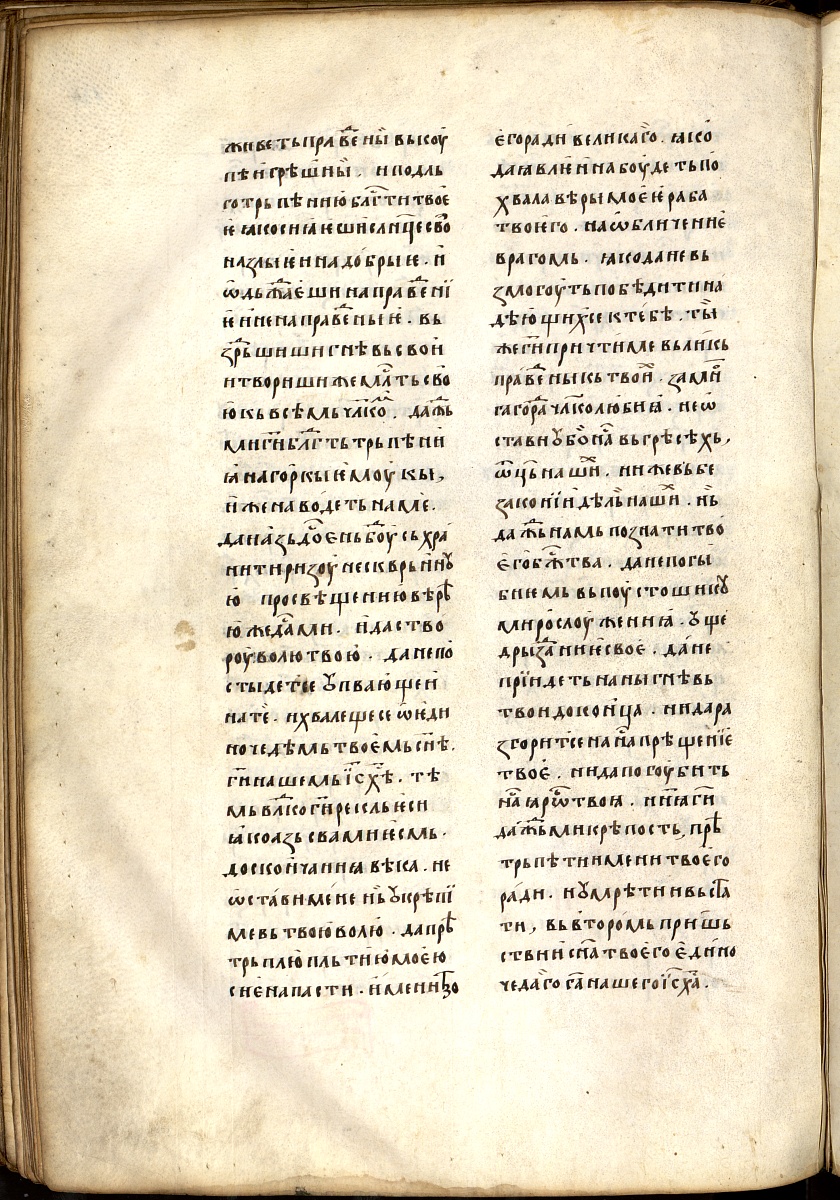 живеть прав҇ені вькоу
пѣ и҆ грѣшні . и подль
го трьпѣнию бл҃гти твоѥ
ѥ ꙗко сиꙗѥши слн҃це сво
на злыѥ и на добрыѥ . и҆
ѡ҆дьжд҇аѥши на прав҇енї
ѥ и҆ не на прав҇еныѥ . вь
зрь҇ши ши гнѣвь свои
и твориши же мл҇ть сво
ю кь всѣмь чл҃ком҇ . даж҇ь
ми г҃и бл҃гть трьпѣни
ꙗ на горкыѥ моукы ,
и҆же наводеть на ме .
да и азь до҇ень боу҇ схра
нити ризоу нескврьнну
ю просвѣщению вѣр҇
ю жедами . и҆ да ство
роу волю твою . да не по
стыдет се ꙋпвающеи
на те . и хвалеще се ѡ ѥди
ночедѣмь твоѥмь сн҃ѣ .
г҃и нашемь ї҃с х҃ѣ . тѣ
мь вл҃ко г҃и рекль ѥси
ꙗко азь с вами ѥсмь .
до скончаниꙗ вѣка . не
ѡстави мене нь ꙋкрѣпї
ме вь твою волю . да прѣ҇
трьплю пльтию моею
сиѥ напасти . имени тво
ѥго ради великаго . ꙗко
да ꙗвлѥнна боудеть по
хвала вѣры моѥѥ раба
твоѥго . на ѡбличение
врагомь . ꙗко да не вь
змогоуть побѣдити на
дѣющих се к тебѣ . ты
же г҃и причти ме в ликь
прав҇еныкь твоих҇ . за мно
га гора҇ чл҃колюбиꙗ . не ѡ
стави ꙋбо на҇ вь грѣсѣхь ,
ѡц҃ь наших҇ . ни же вь бе
законїи дѣль наших҇ . нь
даж҇ь намь познати тво
ѥго бж҃тва . да не погы
бнемь вь поустошнкꙋ
мирослоужениꙗ . ꙋще
дры заниѥ своѥ . да не
прїидеть на ны гнѣвь
твои до конца . ни да ра
згорит се на на҇ прѣщенїе
твое . ни да погоубить
на҇ ꙗрѡ҇ твоꙗ . и н҃ꙗ г҃и
даж҇ь ми крѣпость , прѣ҇
трьпѣти имени твоѥго
ради . и ꙋмрѣти и вьста҇
ти , вь второмь пришь
ствии сн҃а твоѥго ѥдино
чедаго г҃а нашего ї҃с х҃а .